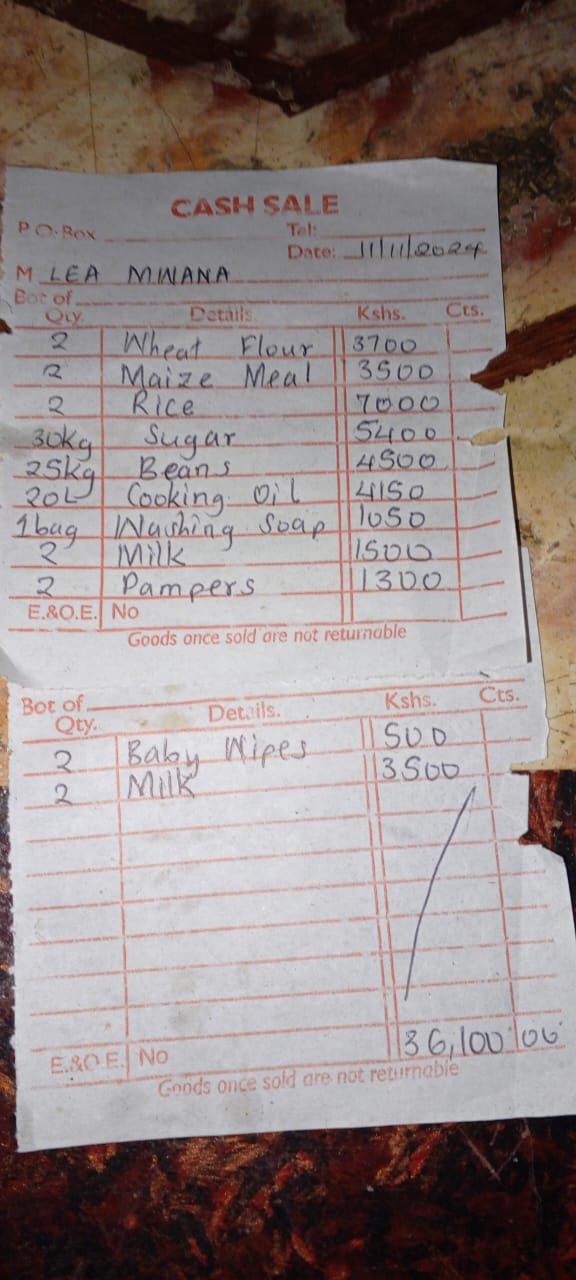 CASH SALE
P.O. Box
Tel:
Date: 11/11/2024
M LEA MWANA
Bot of
Qty. Details. Kshs. Cts.
2 Wheat Flour 3700
2 Maize Meal 3500
2 Rice 7000
30kg Sugar 5400
25kg Beans 4500
20L Cooking Oil 4150
1bag Washing Soap 1050
2 Milk 1500
2 Pampers 1300
E.&O.E. No
Goods once sold are not returnable
Bot of
Qty. Details. Kshs. Cts.
2 Baby Wipes 500
2 Milk 3500
36,100 00
E.&O.E. No
Goods once sold are not returnable